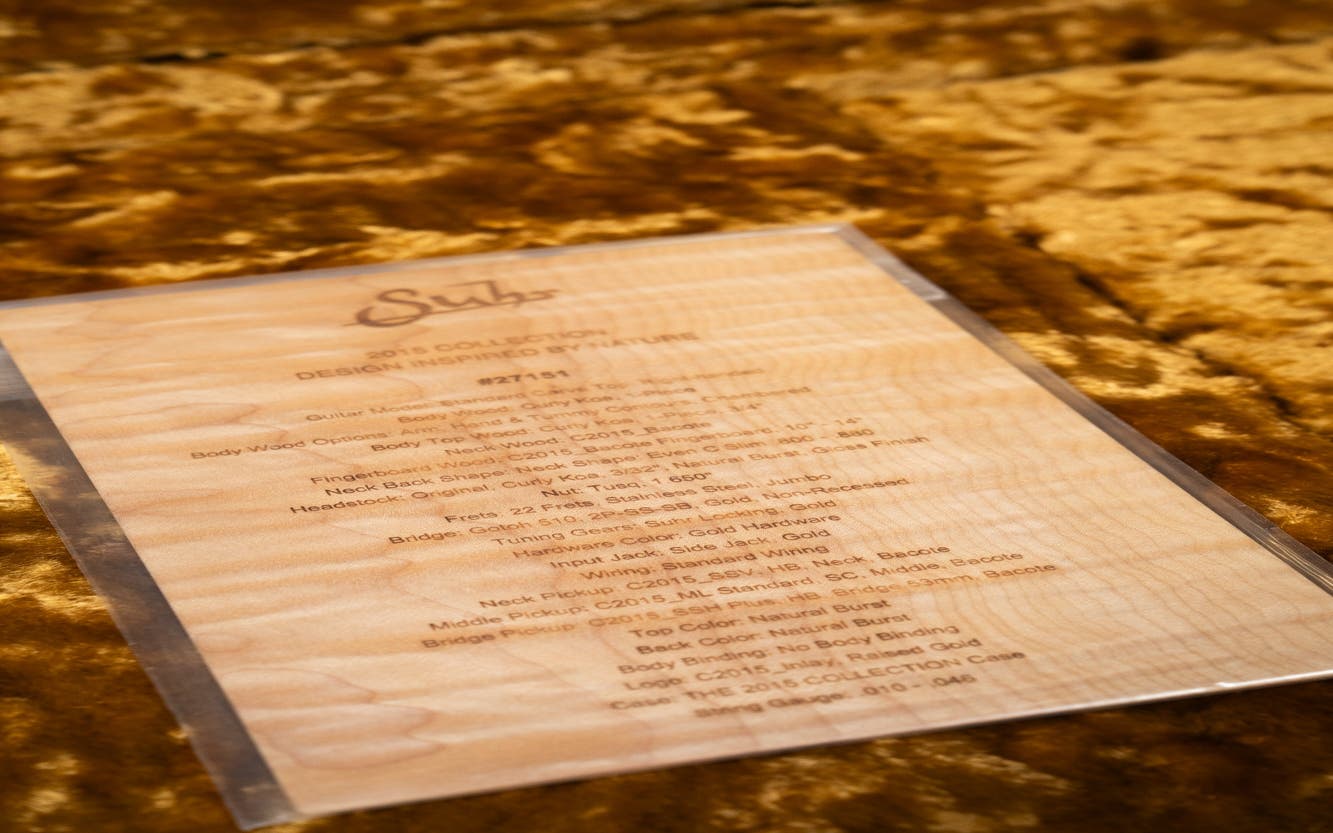 Suhr
2015 COLLECTION
DESIGN INSPIRED BY NATURE
#27151
Guitar Model: Standard
Body Wood: Curly Koa,
Body Wood Options:
Body Top Wood: Curly Koa
Neck Wood: C2015_Bacote
Fingerboard Wood: C2015_Bacote Fingerboard, 10" - 14"
Neck Back Shape: Neck Shape: Even C Slim .800 - .850
Headstock: Original, Curly Koa, 3/32", Natural Burst, Gloss Finish
Nut: Tusq, 1.650"
Frets: 22 Frets, Stainless Steel, Jumbo
Bridge: Gotoh 510, 2P-SS-SB, Gold, Non-Recessed
Tuning Gears: Suhr Locking, Gold
Hardware Color: Gold Hardware
Input Jack: Side Jack, Gold
Wiring: Standard Wiring
Neck Pickup: C2015_SSV, HB, Neck, Bacote
Middle Pickup: C2015_ML Standard, SC, Middle, Bacote
Bridge Pickup: C2015_SSH Plus, HB, Bridge 53mm, Bacote
Top Color: Natural Burst
Back Color: Natural Burst
Body Binding: No Body Binding
Logo: C2015_Inlay, Raised Gold
Case: THE 2015 COLLECTION Case
String Gauge: .010 - .046